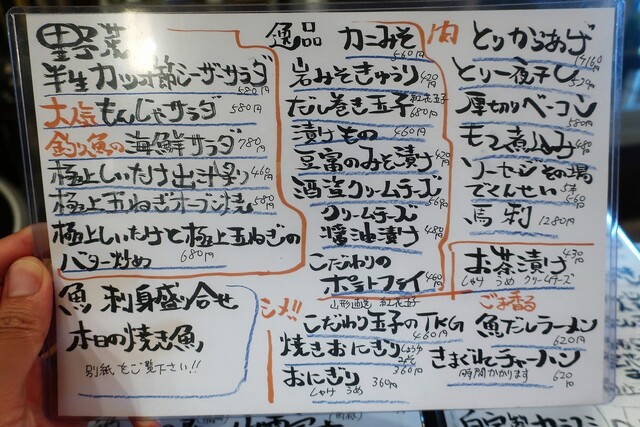 野菜
半生カツオ節シーザーサラダ
680円
大人気もんじゃサラダ 580円
釣り魚の海鮮サラダ 780円
極上しいたけ出汁炙り 460円
極上玉ねぎオーブン焼 580円
極上しいたけと極上玉ねぎの
バター炒め 680円
魚 刺身盛り合せ
本日の焼き魚
別紙をご覧下さい!!
逸品 カニみそ
560円
岩みそきゅうり 420円
だし巻き玉子 紅花玉子 680円
漬けもの 460円
豆富のみそ漬け 420円
酒盗クリームチーズ
560円
クリームチーズ
醤油漬け 480円
こだわりの
ポテトフライ 460円
肉 とりからあげ
とり一夜干し
520円
厚切りベーコン
580円
モツ煮込み
ソーセージその場
でくんせい 5本
560円
馬刺 1280円
お茶漬け 430円
しゃけ うめ クリームチーズ
シメ!!
こだわり玉子のTKG
460円
焼きおにぎり しょうゆ みそ
360円
おにぎり 360円
しゃけ うめ
ごま香る
魚だしラーメン
620円
きまぐれチャーハン
時間かかります 620円